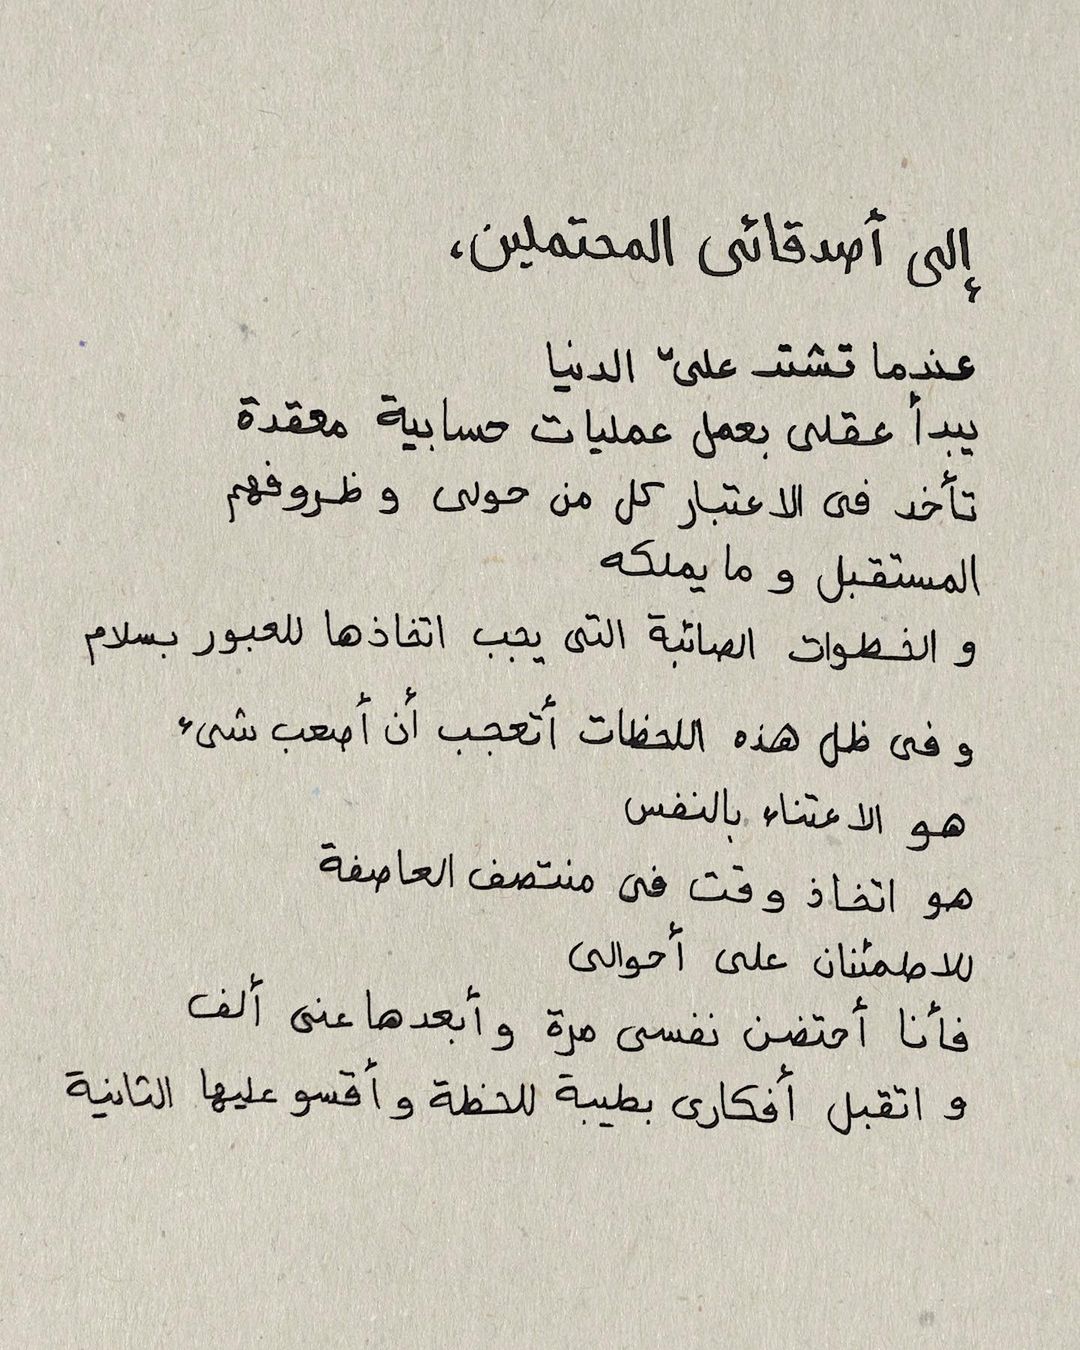 إلى أصدقائى المحتملين،
عندما تشتد علىّ الدنيا
يبدأ عقلى بعمل عمليات حسابية معقدة
تأخد فى الاعتبار كل من حولى و ظروفهم
المستقبل و ما يملكه
و الخطوات الصائبة التى يجب اتخاذها للعبور بسلام
و فى ظل هذه اللحظات أتعجب أن أصعب شىء
هو الاعتناء بالنفس
هو اتخاذ وقت فى منتصف العاصفة
للاطمئنان على أحوالى
فأنا أحتضن نفسى مرة و أبعدها عنى ألف
و اتقبل أفكارى بطيبة للحظة و أقسو عليها الثانية